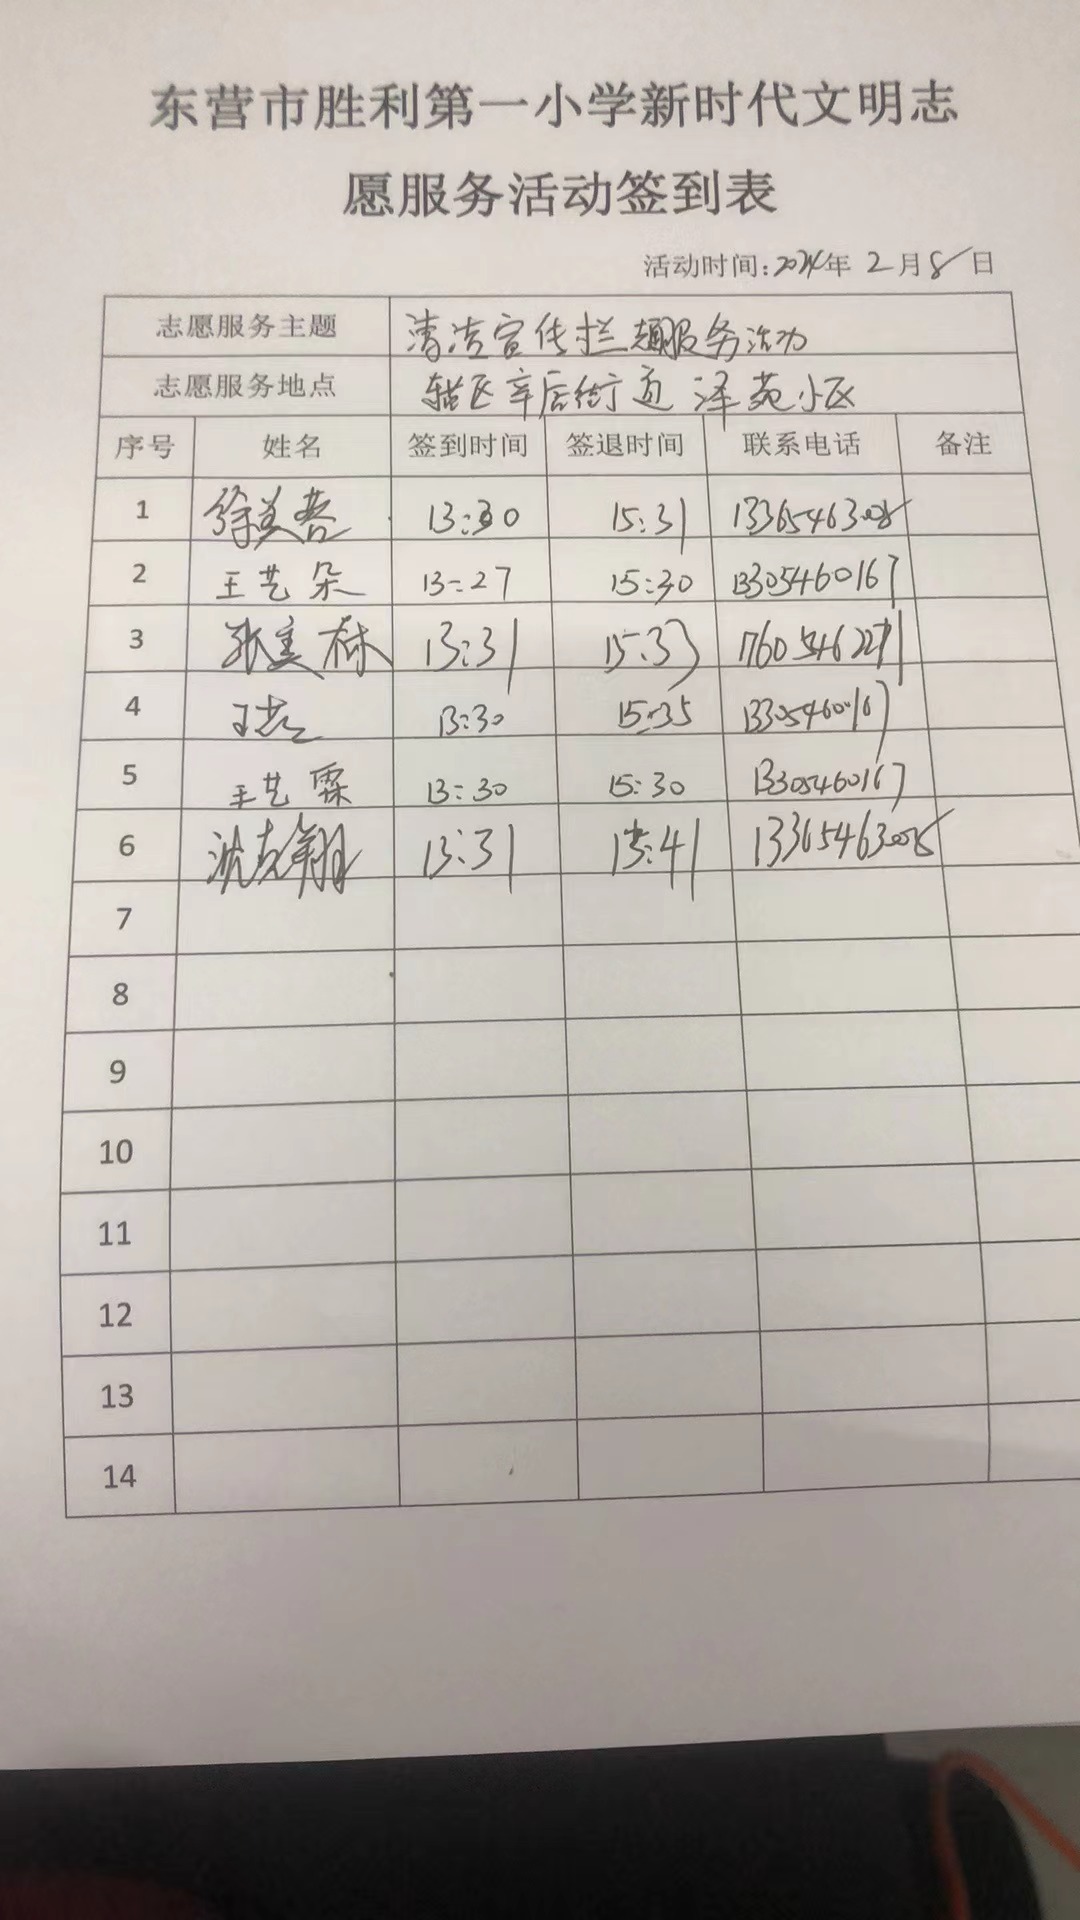 东营市胜利第一小学新时代文明志
愿服务活动签到表
活动时间:2024年 2月8日
志愿服务主题 清洁宣传栏志愿服务活动
志愿服务地点 辖区辛店街道 泽苑小区
序号 姓名 签到时间 签退时间 联系电话 备注
1 13:30 15:31 13365463008
2 王艺朵 13:27 15:30 13305460167
3 13:31 15:33
4 13:30 15:35 13305460167
5 王艺霖 13:30 15:30 13305460167
6 沈克翔 13:31 15:41 13365463008
7
8
9
10
11
12
13
14